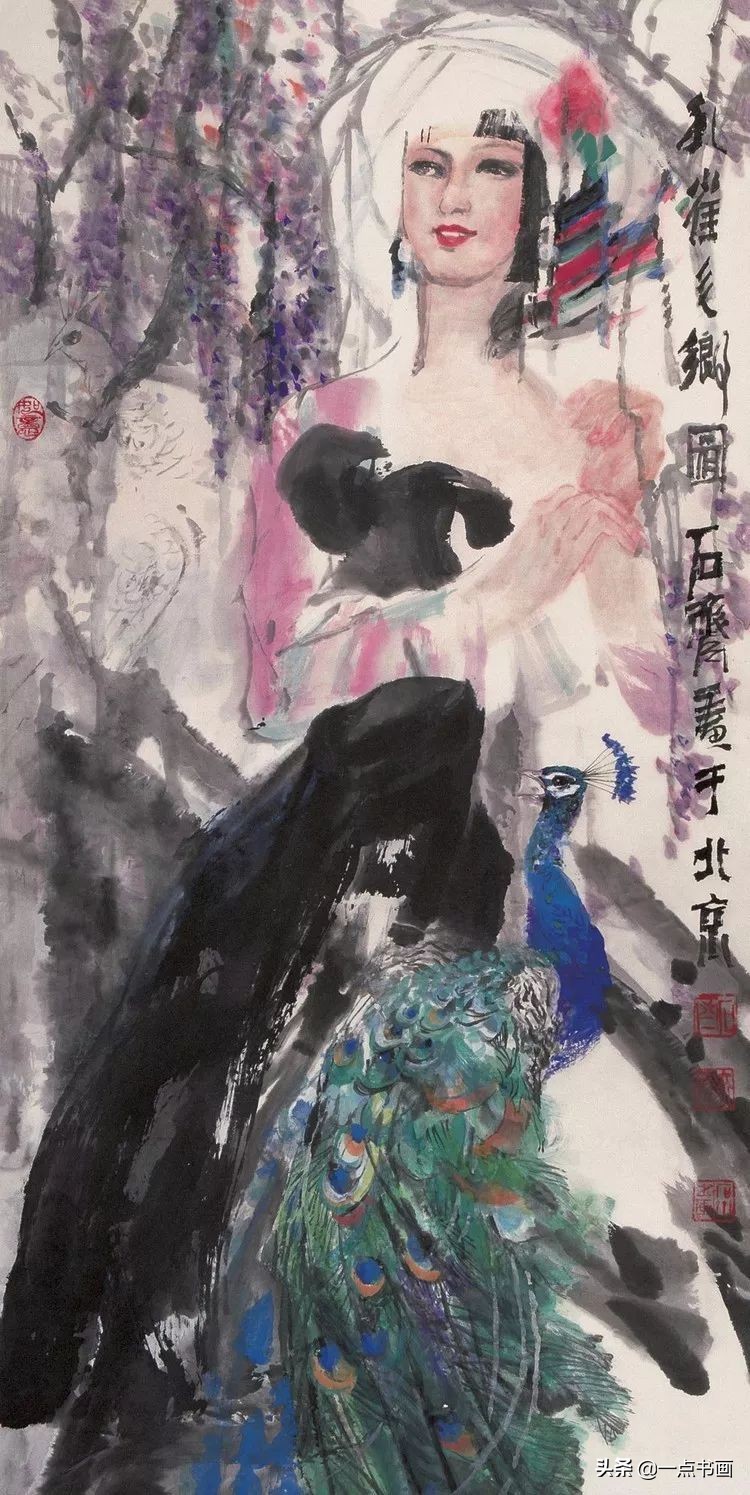 孔雀之鄉圖 石齊畫于北京
头条 @一点书画